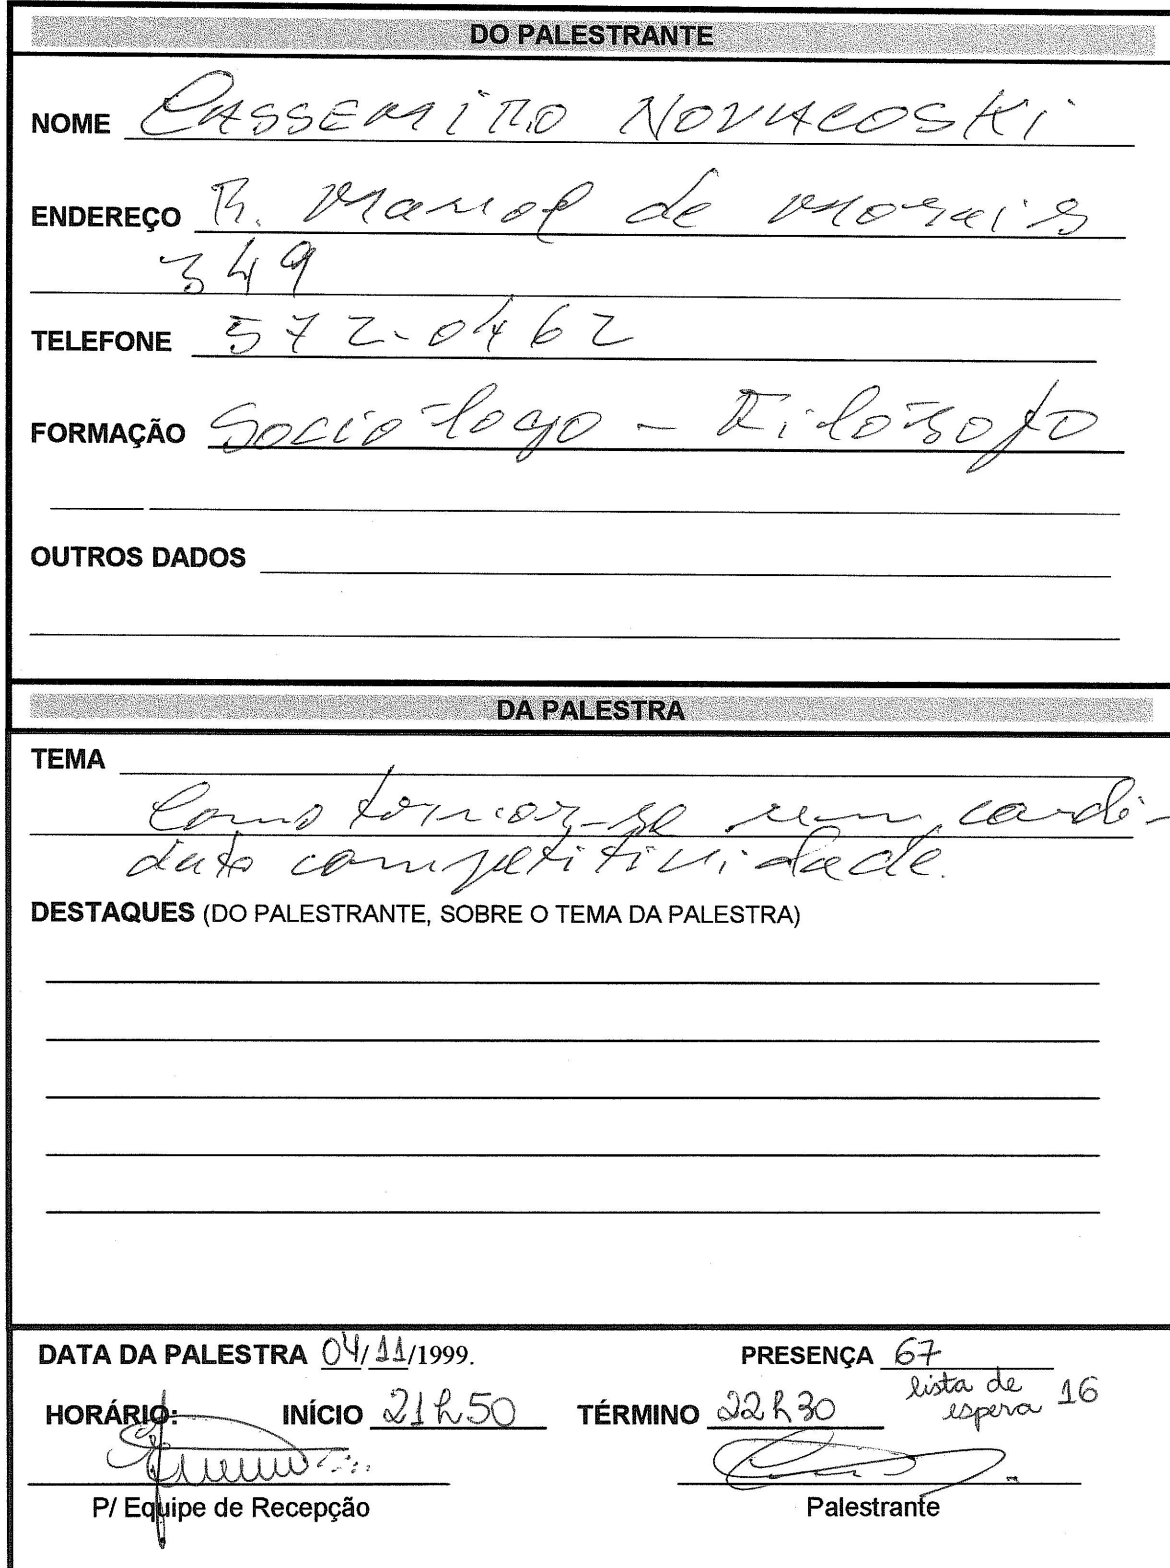 DO PALESTRANTE
NOME CASSEMIRO NOVACOSKI
ENDEREÇO R. Manoel de Morais
349
TELEFONE 572-0462
FORMAÇÃO Sociólogo - Filósofo
OUTROS DADOS
DA PALESTRA
TEMA
Como tornar-se um candi-
dato competitividade.
DESTAQUES (DO PALESTRANTE, SOBRE O TEMA DA PALESTRA)
DATA DA PALESTRA 04/11/1999. PRESENÇA 67
lista de espera 16
HORÁRIO: INÍCIO 21h50 TÉRMINO 22h30
P/ Equipe de Recepção Palestrante